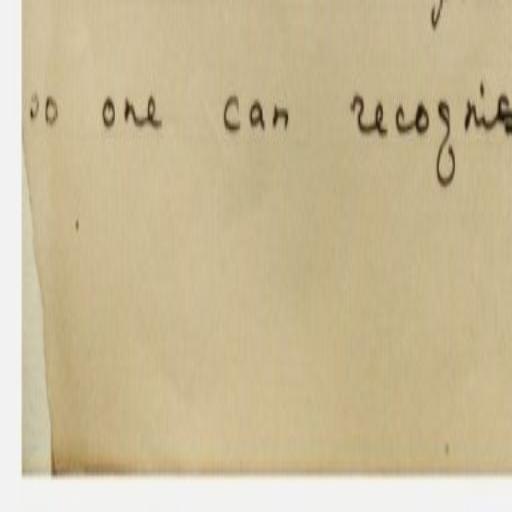 one can recognis